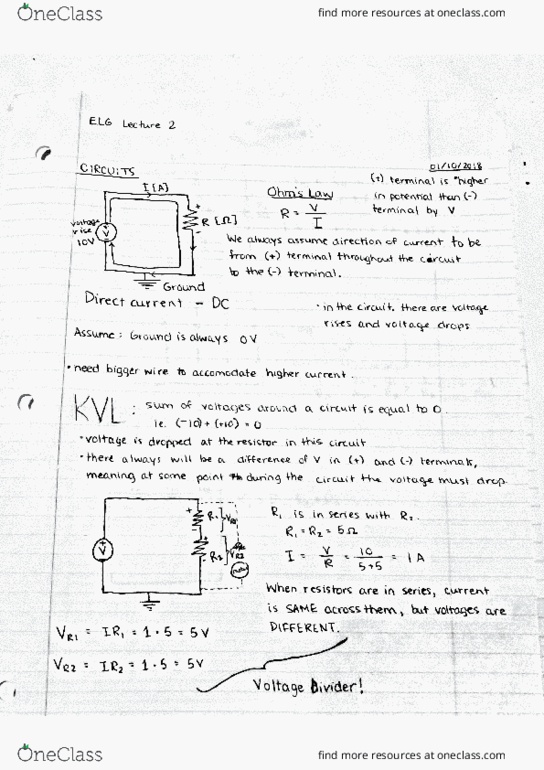 OneClass
find more resources at oneclass.com
ELG Lecture 2
01/10/2018
CIRCUITS
I [A]
voltage
rise
10V
V
+
R [Ω]
-
Ground
Ohm's Law
R = V/I
(+) terminal is "higher
in potential than (-)
terminal by V
We always assume direction of current to be
from (+) terminal throughout the circuit
to the (-) terminal.
Direct current - DC
• in the circuit, there are voltage
rises and voltage drops
Assume: Ground is always 0V
• need bigger wire to accomodate higher current.
KVL : sum of voltages around a circuit is equal to 0.
ie. (-10) + (+10) = 0
• voltage is dropped at the resistor in this circuit
• there always will be a difference of V in (+) and (-) terminals,
meaning at some point during the circuit the voltage must drop.
V
+
R1
VR1
R2
VR2
-
R1 is in series with R2.
R1 = R2 = 5Ω
I = V/R = 10/5+5 = 1A
When resistors are in series, current
is SAME across them, but voltages are
DIFFERENT.
VR1 = IR1 = 1 · 5 = 5V
VR2 = IR2 = 1 · 5 = 5V
Voltage Divider!
OneClass
find more resources at oneclass.com